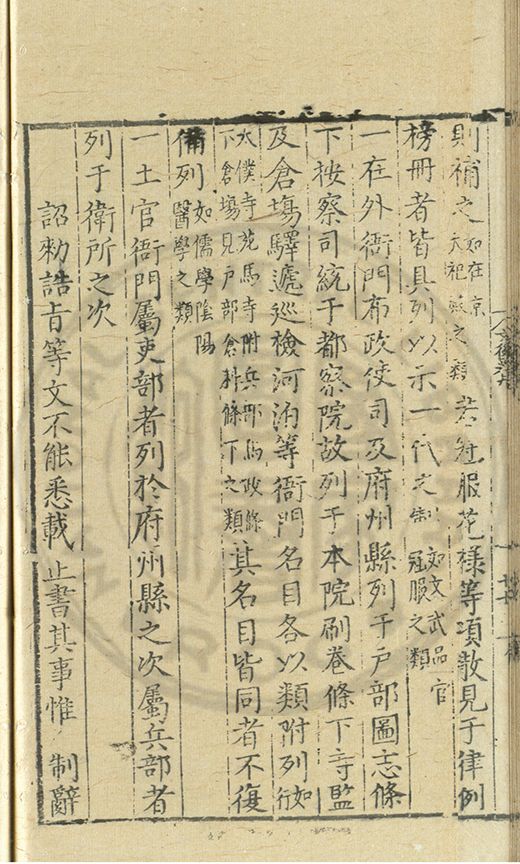 則補之如在京之類若冠服花樣等項散見于律例
榜冊者皆具列以示一代之制如文武品官冠服之類
一在外衙門布政使司及府州縣列于戶部圖志條
下按察司統于都察院故列于本院刷卷條下寺監
及倉塲驛遞巡檢河泊等衙門名目各以類附列如
太僕寺苑馬寺附兵部馬政條下倉塲見戶部倉科條下之類其名目皆同者不復
備列如儒學陰陽醫學之類
一土官衙門屬吏部者列於府州縣之次屬兵部者
列于衛所之次
詔勑誥旨等文不能悉載止書其事惟 制辭